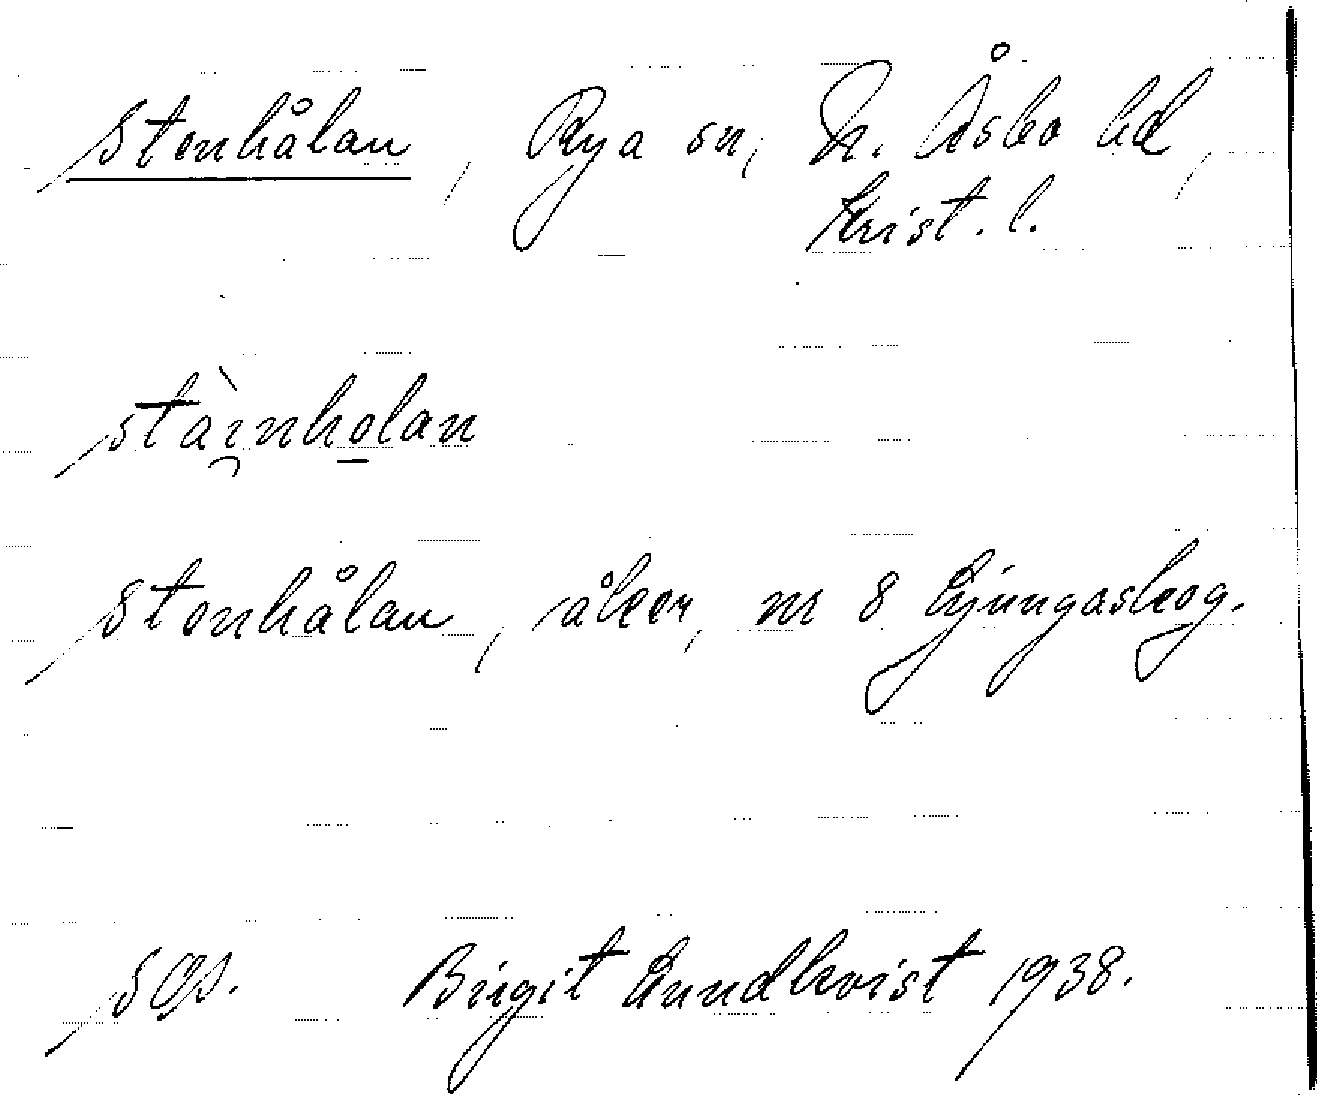 Stenhålan, Rya sn, N. Åsbo hd,
Krist. l.
stài̯nho̲lan
Stenhålan, åker, nr 8 Ljungaskog.
sgs. Birgit Lundkvist 1938.